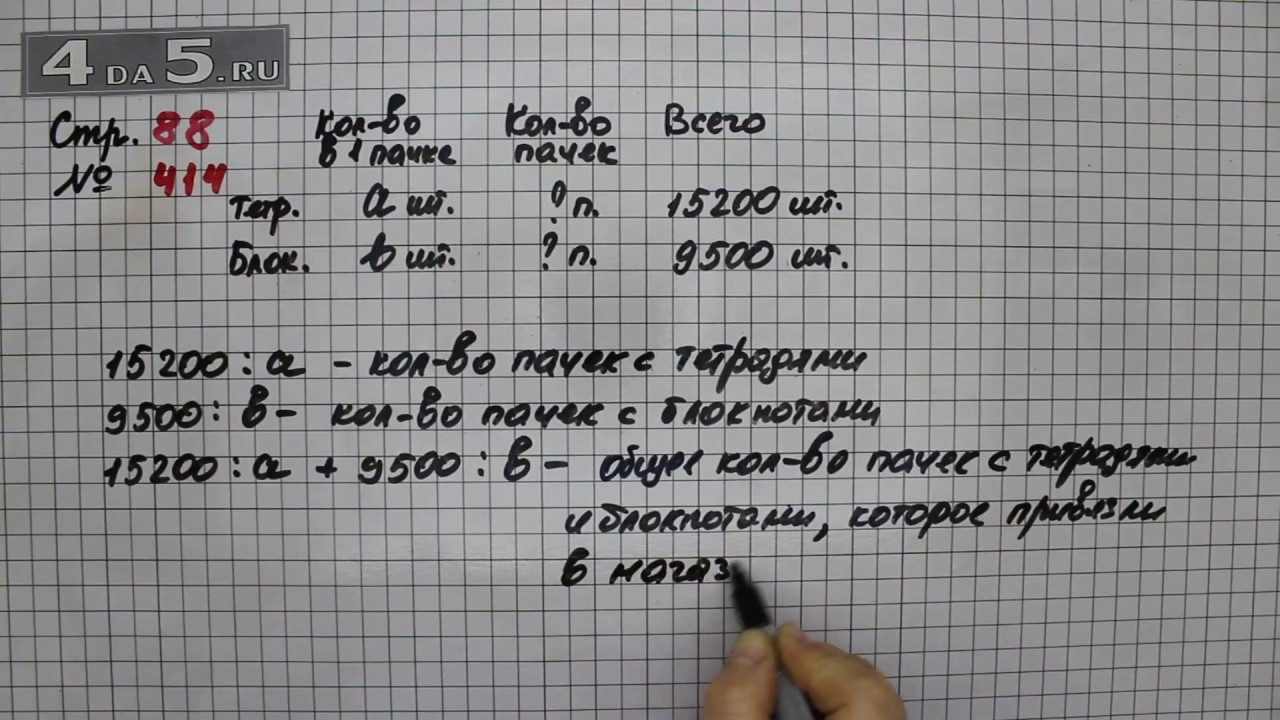 4DA5.RU
Стр. 88 Кол-во Кол-во Всего
в 1 пачке пачек
№ 414
Тетр. а шт. ? п. 15200 шт.
Блок. b шт. ? п. 9500 шт.
15200 : а - кол-во пачек с тетрадями
9500 : в - кол-во пачек с блокнотами
15200 : а + 9500 : в - общее кол-во пачек с тетрадями
и блокнотами, которое привязли
в магаз